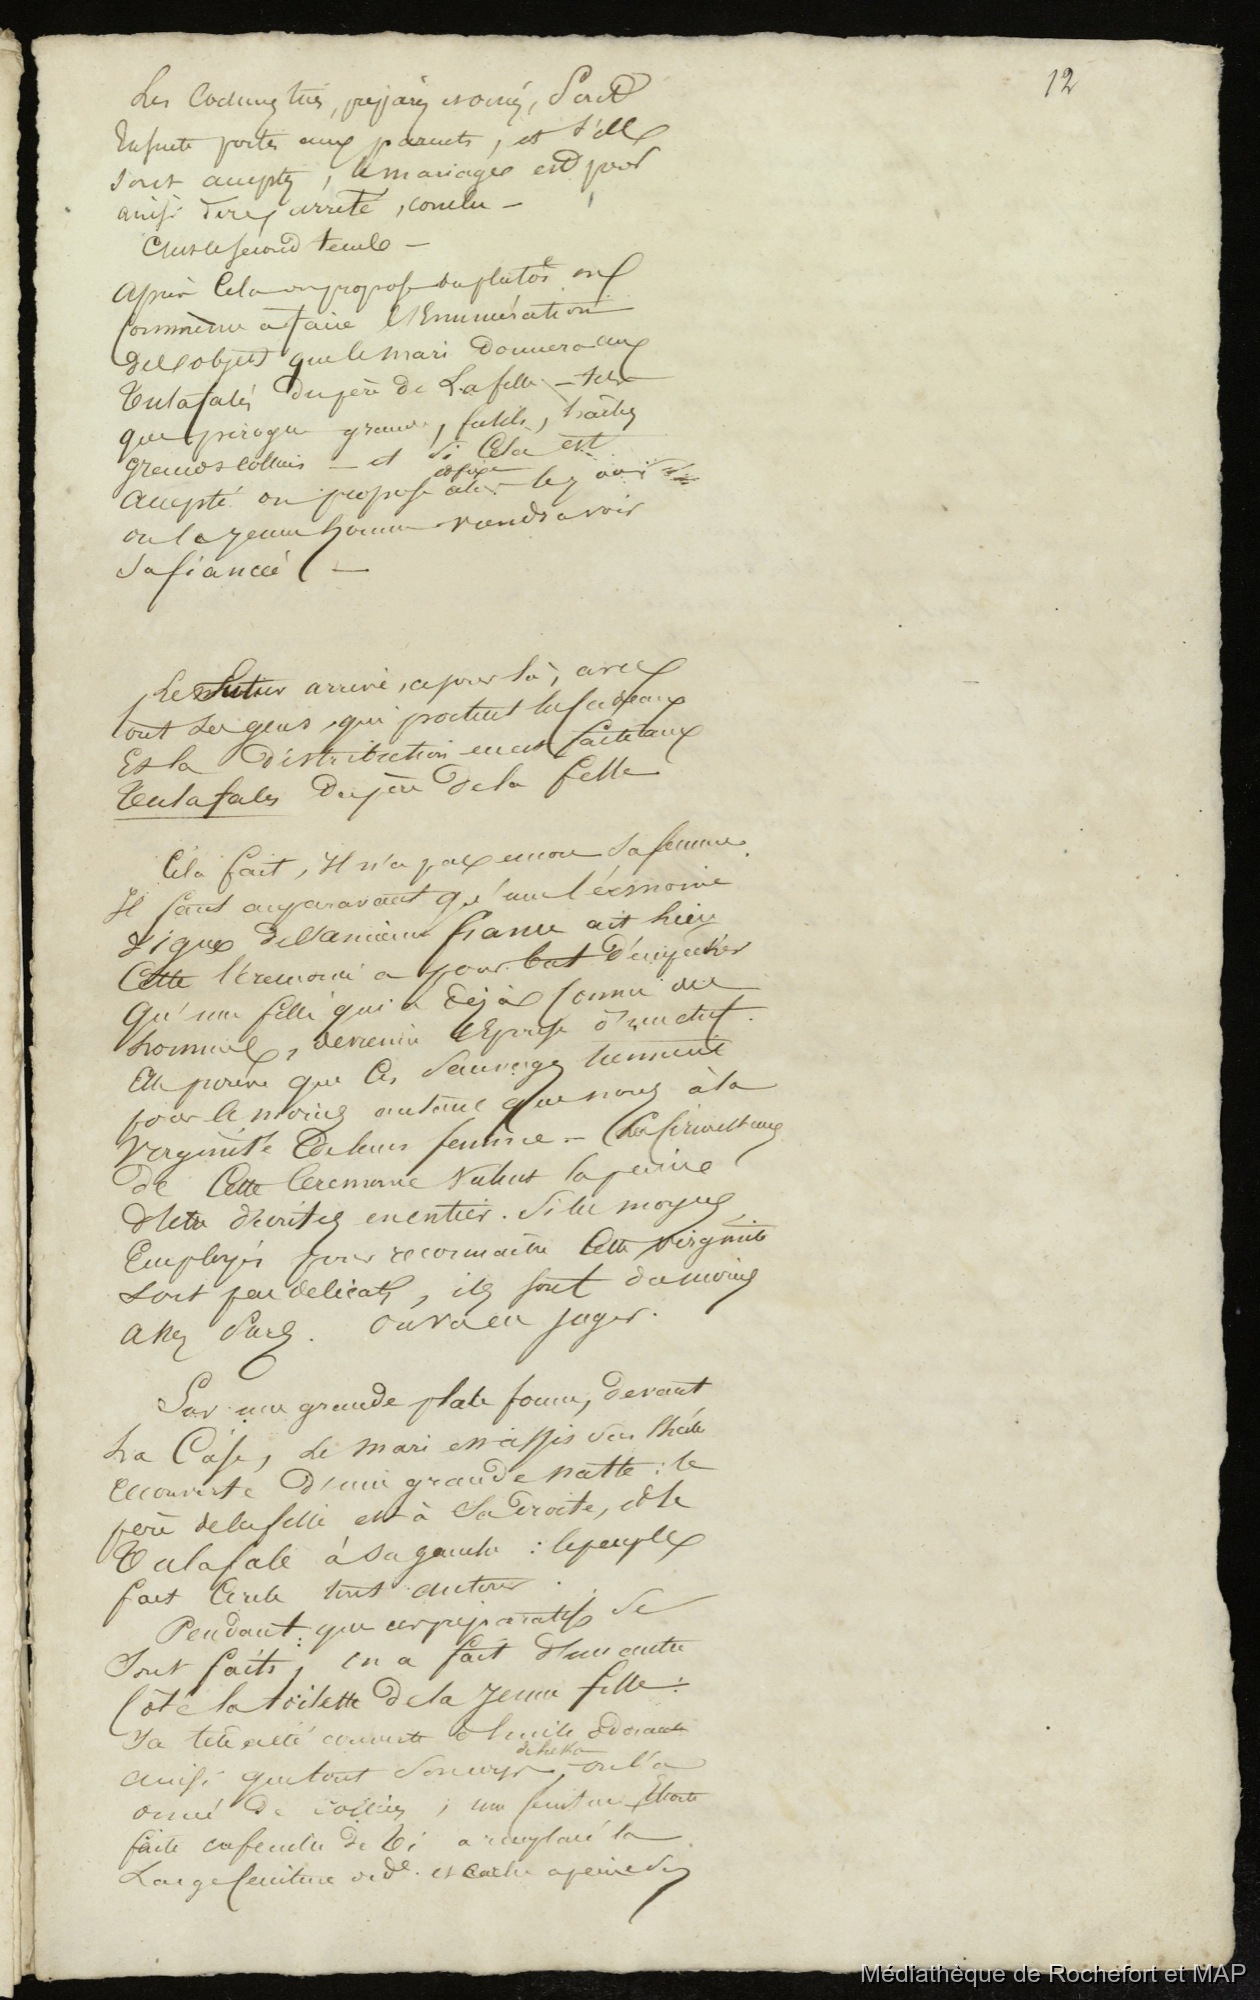 12
Les Cochons tués, préparés et ornés, Sont
Ensuite portés aux parents, et s'ils
sont acceptés, le mariage est pour
ainsi dire arreté, conclu —
C'est le second temps —
Après Cela on propose ou plutot on
Commence à faire l'Enumération
des objets que le mari donnera aux
Tulafalés du père de La fille — tels
que pirogue grande, fusils, haches
grands colliers — et Si Cela est
accepté on propose et fixe le jour
ou le jeune homme viendra voir
Sa fiancée —
Le futur arrive, ce jour là, avec
tout ses gens, qui portent les cadeaux
Et la distribution en est faite aux
Tulafales du père de la fille
Cela fait, Il n'a pas encore Sa femme.
Il faut auparavant qu'une Cérémonie
digne de l'ancienne france ait lieu
Cette Ceremonie a pour but d'empêcher
Qu'une fille qui a déjà Connu des
hommes, devienne l'Epouse d'un chef.
Elle prouve que Ces Sauvages tiennent
pour le moins autant que nous à la
Virginité de leurs femmes — Les circonstances
de Cette Ceremonie valent la peine
d'etre décrites en entier. Si les moyens
Employés pour reconnaitre Cette virginité
Sont peu delicats, ils sont du moins
assez Surs. On va en juger.
Sur une grande plate forme, devant
La Case, Le mari est assis sur
recouverte d'une grande natte : le
père de la fille est à Sa droite, et le
Tulafale à Sa gauche : le peuple
fait Cercle tout autour.
Pendant que ces préparatifs Se
Sont faits, on a fait d'un autre
Côté la toilette de la Jeune fille :
Sa tête a été couverte d'huile odorante
ainsi que tout Son corps — on l'a
orné de colliers, une ceinture Etroite
faite en feuilles de Ti a remplacé la
Large Ceinture ord.e et cache a peine Ses
Médiathèque de Rochefort et MAP